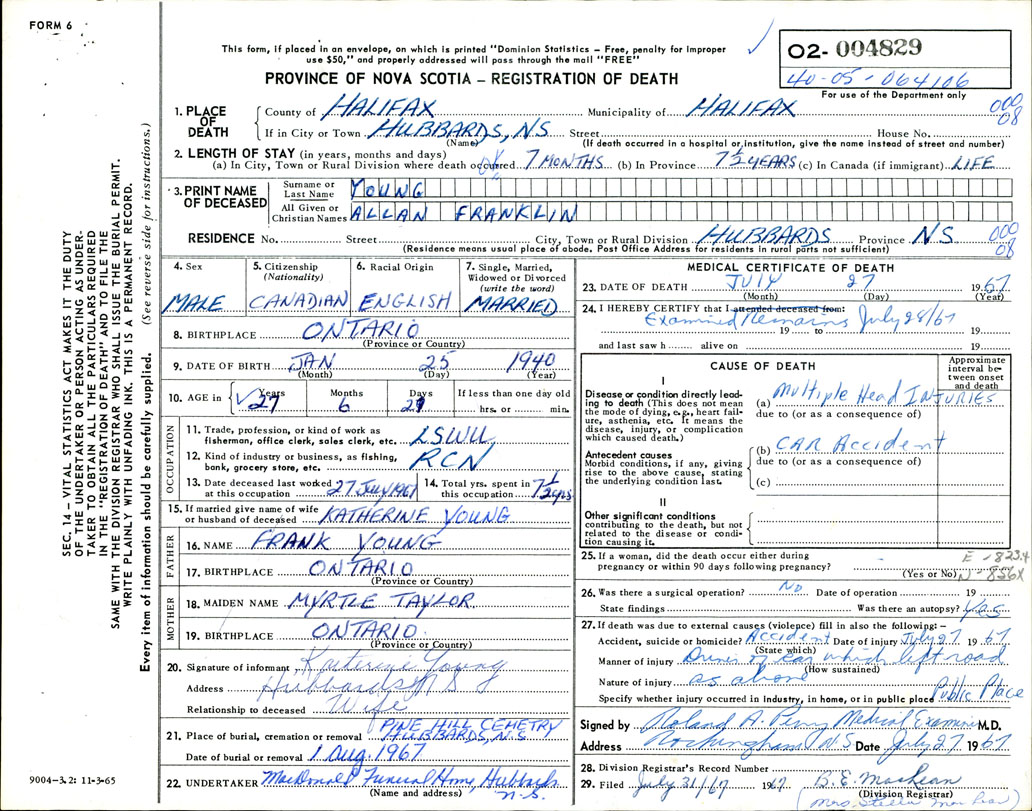 FORM 6
This form, if placed in an envelope, on which is printed "Dominion Statistics – Free, penalty for improper
use $50," and properly addressed will pass through the mail "FREE"
PROVINCE OF NOVA SCOTIA – REGISTRATION OF DEATH
02- 004829
40-05-064106
For use of the Department only
SEC. 14 – VITAL STATISTICS ACT MAKES IT THE DUTY
OF THE UNDERTAKER OR PERSON ACTING AS UNDER-
TAKER TO OBTAIN ALL THE PARTICULARS REQUIRED
IN THE "REGISTRATION OF DEATH" AND TO FILE THE
SAME WITH THE DIVISION REGISTRAR WHO SHALL ISSUE THE BURIAL PERMIT.
WRITE PLAINLY WITH UNFADING INK. THIS IS A PERMANENT RECORD.
Every item of information should be carefully supplied. (See reverse side for instructions.)
1. PLACE OF DEATH County of HALIFAX Municipality of HALIFAX 000 08
If in City or Town HUBBARDS, N.S Street House No.
(Name) (If death occurred in a hospital or institution, give the name instead of street and number)
2. LENGTH OF STAY (in years, months and days)
(a) In City, Town or Rural Division where death occurred 7 MONTHS (b) In Province 7½ YEARS (c) In Canada (if immigrant) LIFE
3. PRINT NAME OF DECEASED Surname or Last Name YOUNG
All Given or Christian Names ALLAN FRANKLIN
RESIDENCE No. Street City, Town or Rural Division HUBBARDS Province NS 000 08
(Residence means usual place of abode. Post Office Address for residents in rural parts not sufficient)
4. Sex MALE
5. Citizenship (Nationality) CANADIAN
6. Racial Origin ENGLISH
7. Single, Married, Widowed or Divorced (write the word) MARRIED
8. BIRTHPLACE ONTARIO
(Province or Country)
9. DATE OF BIRTH JAN 25 1940
(Month) (Day) (Year)
10. AGE in Years 27 Months 6 Days If less than one day old hrs. or min.
OCCUPATION
11. Trade, profession or kind of work as
fisherman, office clerk, sales clerk, etc. LSWU
12. Kind of industry or business, as fishing,
bank, grocery store, etc. RCN
13. Date deceased last worked at this occupation 27 July 1967
14. Total yrs. spent in this occupation 7½ yrs
15. If married give name of wife
or husband of deceased KATHERINE YOUNG
FATHER
16. NAME FRANK YOUNG
17. BIRTHPLACE ONTARIO
(Province or Country)
MOTHER
18. MAIDEN NAME MYRTLE TAYLOR
19. BIRTHPLACE ONTARIO
(Province or Country)
20. Signature of informant Katherine Young
Address Hubbards N S
Relationship to deceased Wife
21. Place of burial, cremation or removal PINE HILL CEMETRY
HUBBARDS, N.S
Date of burial or removal 1 Aug. 1967
22. UNDERTAKER MacDonald Funeral Home, Hubbards
N.S.
(Name and address)
MEDICAL CERTIFICATE OF DEATH
23. DATE OF DEATH JULY 27 1967
(Month) (Day) (Year)
24. I HEREBY CERTIFY that I attended deceased from:
Examined Remains July 28/67
19 to 19
and last saw h alive on 19
CAUSE OF DEATH
Approximate interval between onset and death
I
Disease or condition directly lead-
ing to death (This does not mean
the mode of dying, e.g., heart fail-
ure, asthenia, etc. It means the
disease, injury, or complication
which caused death.)
(a) Multiple Head INJURIES
due to (or as a consequence of)
Antecedent causes
Morbid conditions, if any, giving
rise to the above cause, stating
the underlying condition last.
(b) CAR Accident
due to (or as a consequence of)
(c)
II
Other significant conditions
contributing to the death, but not
related to the disease or condi-
tion causing it.
25. If a woman, did the death occur either during
pregnancy or within 90 days following pregnancy?
(Yes or No)
E - 823.4
N - 856X
26. Was there a surgical operation? No Date of operation 19
State findings Was there an autopsy? Yes
27. If death was due to external causes (violence) fill in also the following: –
Accident, suicide or homicide? Accident Date of injury July 27 1967
(State which)
Manner of injury Driver of car which left road
(How sustained)
Nature of injury as above
Specify whether injury occurred in industry, in home, or in public place Public Place
Signed by Roland A. Perry Medical Examiner M.D.
Address Rockingham N S Date July 27 1967
28. Division Registrar's Record Number
29. Filed July 31/67 1967 B. E. MacLean
(Division Registrar)
9004-3.2: 11-3-65